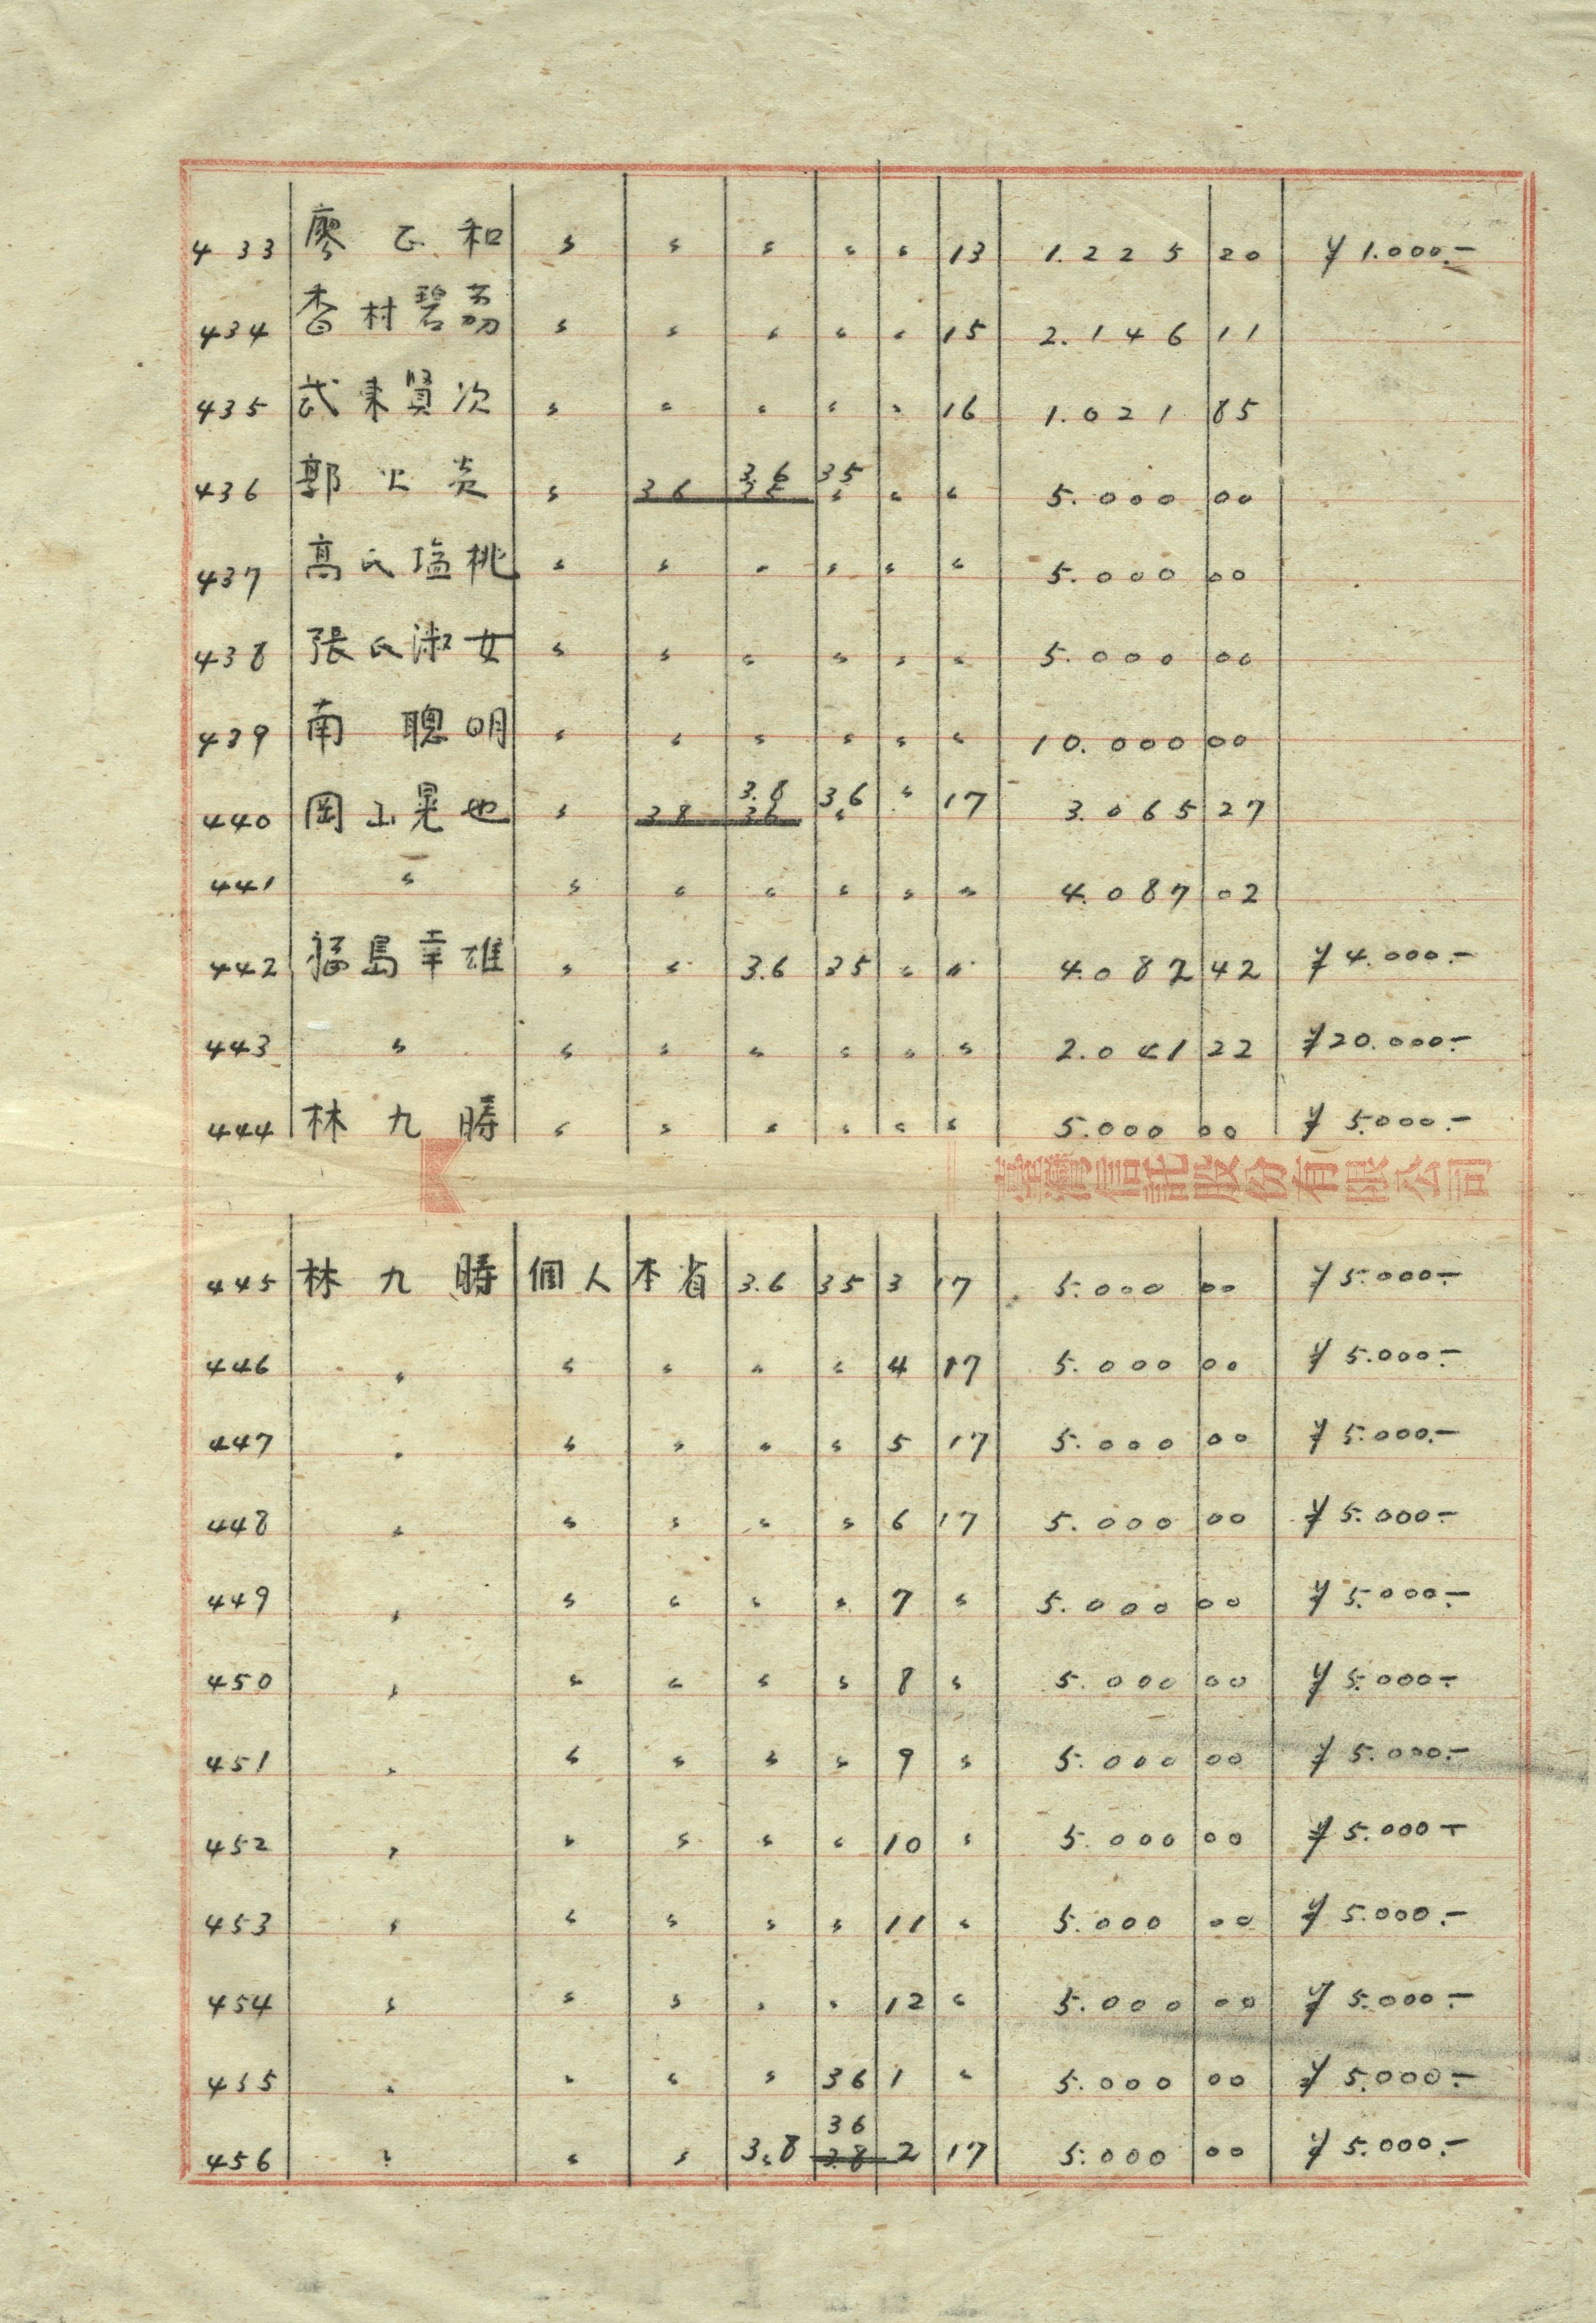 433 廖乙和 〃 〃 〃 〃 〃 13 1.225 20 ¥1.000.-
434 香村碧茘 〃 〃 〃 〃 〃 15 2.146 11
435 武東賢次 〃 〃 〃 〃 〃 16 1.021 85
436 郭火炎 〃 36 3.6 35 〃 〃 5.000 00
437 高氏塩桃 〃 〃 〃 〃 〃 〃 5.000 00
438 張氏淑女 〃 〃 〃 〃 〃 〃 5.000 00
439 南聰明 〃 〃 〃 〃 〃 〃 10.000 00
440 岡山晃也 〃 38 3.8 36 〃 17 3.065 27
441 〃 〃 〃 〃 〃 〃 〃 4.087 02
442 福島幸雄 〃 〃 3.6 35 〃 〃 4.087 42 ¥4.000.-
443 〃 〃 〃 〃 〃 〃 〃 2.041 22 ¥20.000.-
444 林九時 〃 〃 〃 〃 〃 〃 5.000 00 ¥5.000.-
臺灣信託股份有限公司
445 林九時 個人 本省 3.6 35 3 17 5.000 00 ¥5.000.-
446 〃 〃 〃 〃 〃 4 17 5.000 00 ¥5.000.-
447 〃 〃 〃 〃 〃 5 17 5.000 00 ¥5.000.-
448 〃 〃 〃 〃 〃 6 17 5.000 00 ¥5.000.-
449 〃 〃 〃 〃 〃 7 〃 5.000 00 ¥5.000.-
450 〃 〃 〃 〃 〃 8 〃 5.000 00 ¥5.000.-
451 〃 〃 〃 〃 〃 9 〃 5.000 00 ¥5.000.-
452 〃 〃 〃 〃 〃 10 〃 5.000 00 ¥5.000.-
453 〃 〃 〃 〃 〃 11 〃 5.000 00 ¥5.000.-
454 〃 〃 〃 〃 〃 12 〃 5.000 00 ¥5.000.-
455 〃 〃 〃 〃 36 1 〃 5.000 00 ¥5.000.-
456 〃 〃 〃 3.8 36 2 17 5.000 00 ¥5.000.-